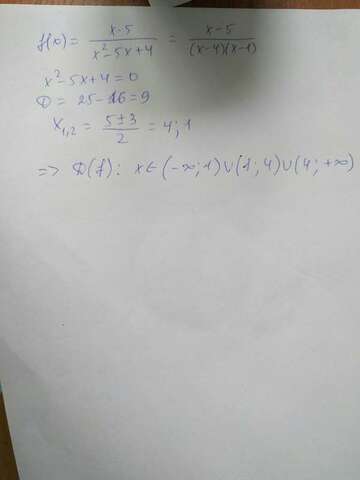 f(x) = x-5 / x²-5x+4 = x-5 / (x-4)(x-1)
x²-5x+4=0
D = 25-16=9
x₁,₂ = 5±3 / 2 = 4; 1
=> D(f): x∈(-∞;1)∪(1;4)∪(4;+∞)